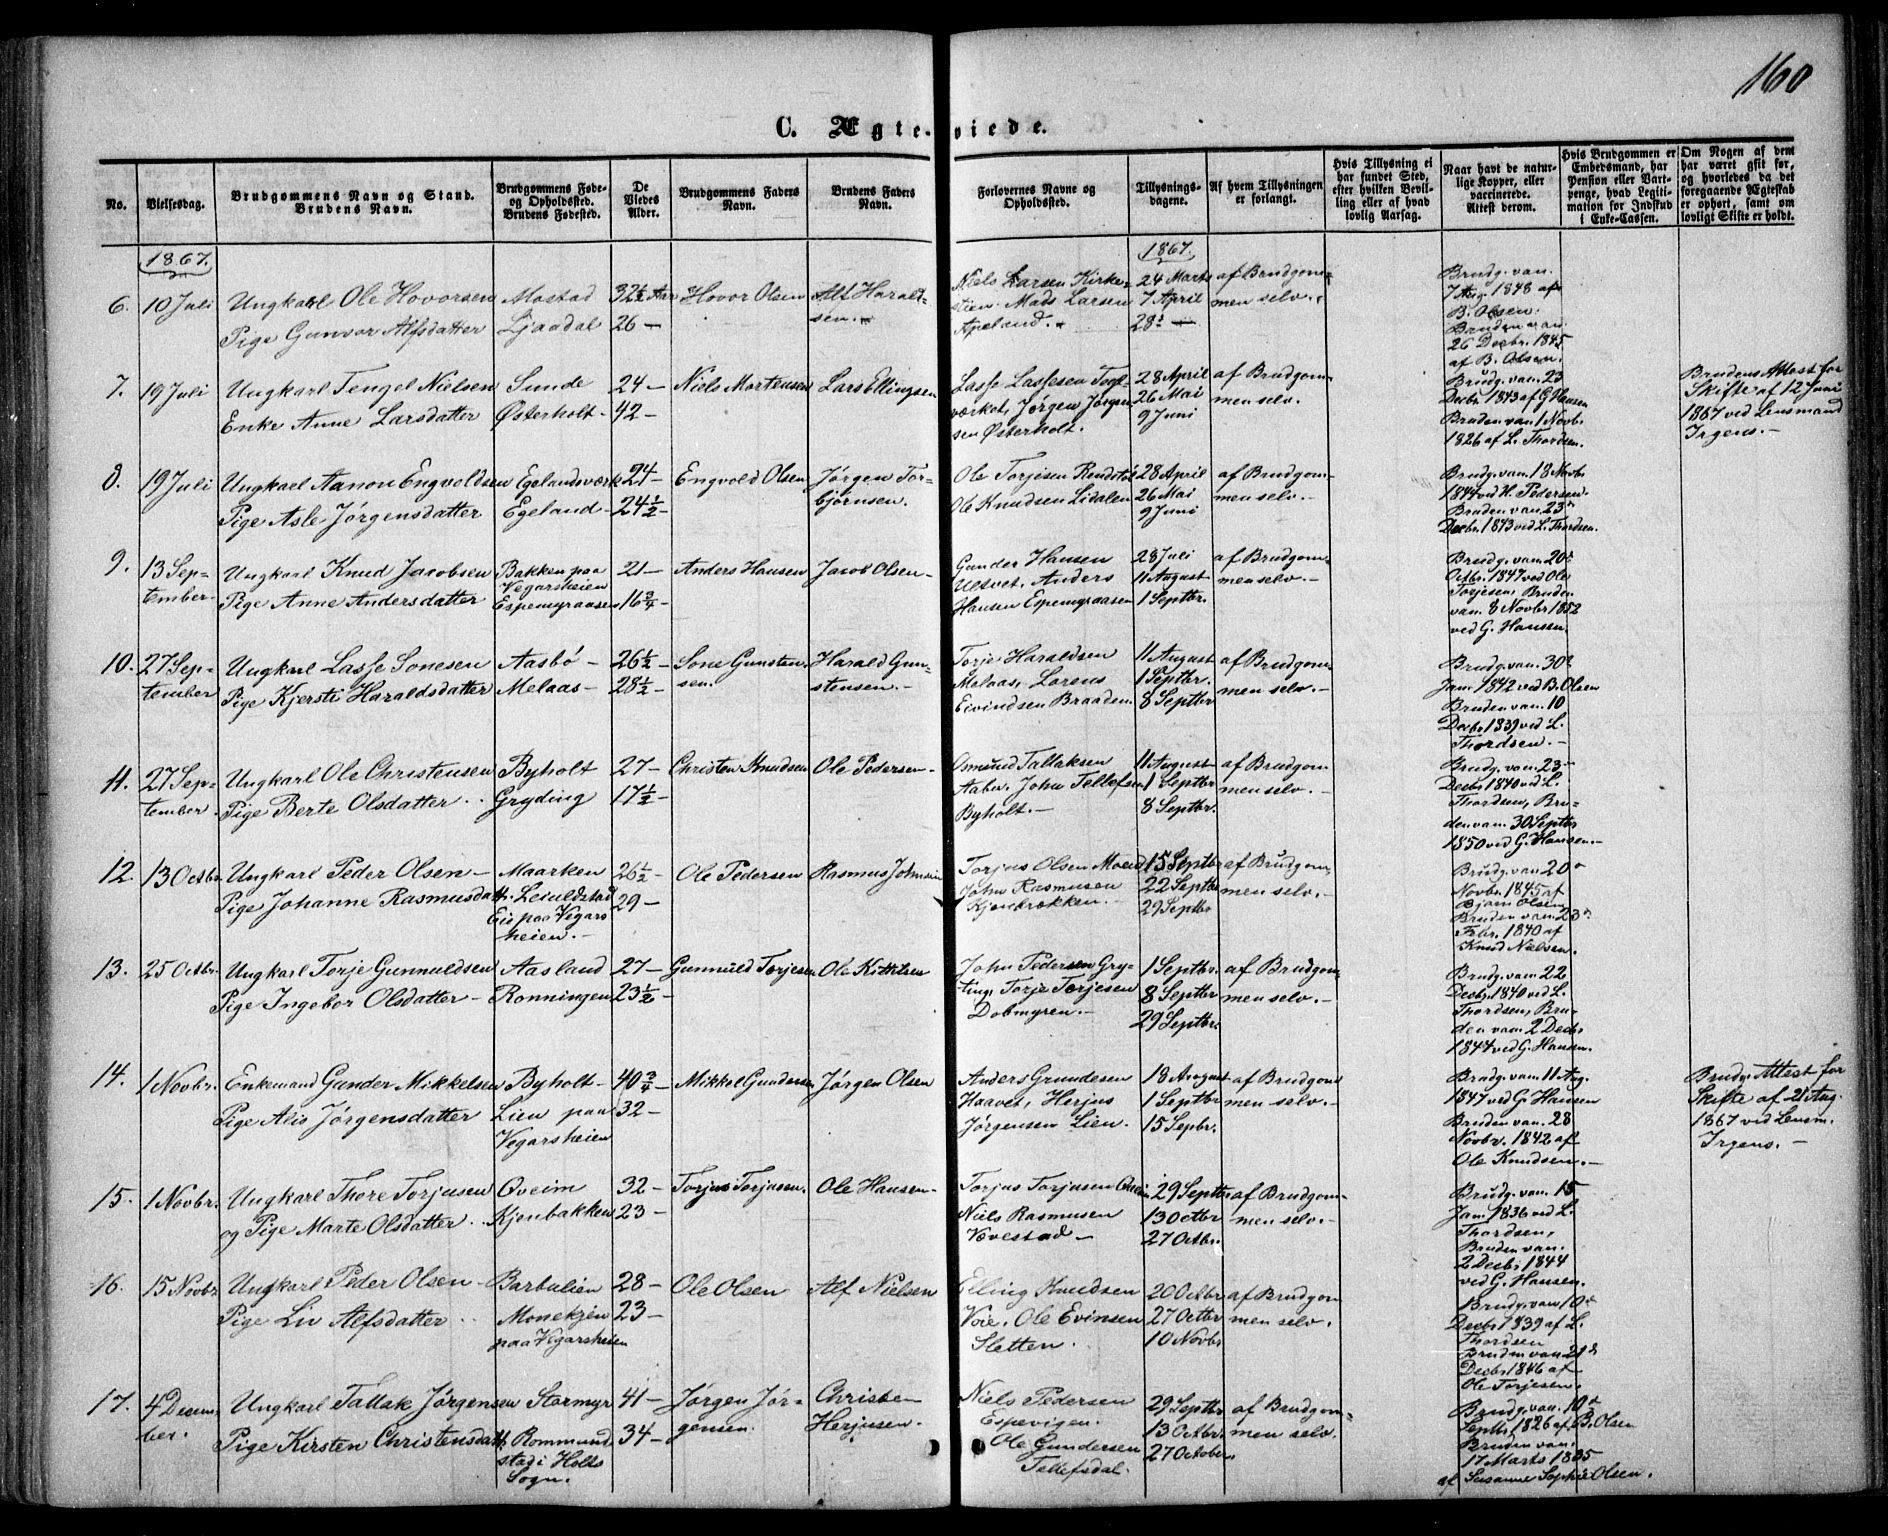 160
C. Ægteviede.
No. | Vielsesdag. | Brudgommens Navn og Stand. Brudens Navn. | Brudgommens Føde- og Opholdsted. Brudens Fødested. | De Viedes Alder. | Brudgommens Faders Navn. | Brudens Faders Navn. | Forlovernes Navne og Opholdsted. | Tillysnings-dagene. | Af hvem Tillysningen er forlangt. | Hvis Tillysning ei har fundet Sted, efter hvilken Bevilling eller af hvad lovlig Aarsag. | Naar havt de naturlige Kopper, eller vaccinerede. Attest derom. | Hvis Brudgommen er Embedsmand, har Pension eller Vartpenge, hvad Legitimation for Indskud i Enke-Cassen. | Om Nogen af dem har været gift før, og hvorledes da det foregaaende Ægteskab er ophørt, samt om lovligt Skifte er holdt.
1867. | 1867.
6. 10 Juli | Ungkarl Ole Hovorsen | Mostad | 32½ Aar | Hovor Olsen | Alf Harald- | Niels Larsen Kirke- | 24 Marts | af Brudgom- | Brudg. van.
Pige Gunvor Alfsdatter | Ljaadal | 26 — | sen. | stien. Mads Larsen | 7 April | men selv. | 7 Aug. 1848 af
Apeland. | 28 — | B. Olsen.
Bruden van
26 Decbr. 1845
af B. Olsen.
7. 19 Juli | Ungkarl Tengel Nielsen | Sunde | 24 — | Niels Mortensen | Lars Ellingsen | Lasse Lassesen | 28 April | af Brudgom- | Brudg. van 23 | Brudens Attest for
Enke Anne Larsdatter | Østerholt | 42 — | værket, Jørgen Jørgen- | 26 Mai | men selv. | Decbr. 1843 af G Hansen | Skifte af 12 Juni
sen Østerholt. | 9 Juni | Bruden van 1 Novbr. | 1867 ved Lensmand
1826 af L. Thordsen. | Irgens. —
8. 19 Juli | Ungkarl Aanon Engvoldsen | Egelandsværk | 24 — | Engvold Olsen | Jørgen Tor- | Ole Torjisen | 28 April | af Brudgom- | Brudg. van 18 Novbr.
Pige Asle Jørgensdatter | Egeland | 24½ — | bjørnsen. | Ole Knudsen Lidalen | 26 Mai | men selv. | 1844 ved H. Pedersen.
9 Juni | Bruden van 23
Decbr. 1843 ved L. Thordsen.
9. 13 Sep- | Ungkarl Knud Jacobsen | Bakken paa | 21 — | Anders Hansen | Jacob Olsen | Gunder Hansen | 28 Juli | af Brudgom- | Brudg. van 20
tember | Pige Anne Andersdatter | Vegarsheien | 16¾ — | Ultvet, Anders | 11 August | men selv. | Octbr. 1847 ved Ole
Espemyraasen | Hansen Espemyraasen | 1 Septbr. | Torjesen, Bruden
van. 8 Novbr 1852
ved G. Hansen.
10. 27 Sep- | Ungkarl Lasse Sonesen | Aasbö | 26½ — | Sone Gunsten- | Harald Gun- | Torje Haraldsen | 11 August | af Brudgom- | Brudg. van. 30
tember | Pige Kjersti Haraldsdatter | Melaas | 28½ — | sen. | stensen. | Melaas, Lorens | 1 Septbr. | men selv. | Jan. 1842 ved B. Olsen
Eivindsen Braaden | 8 Septbr | Bruden van. 10
Decbr 1839 ved L.
Thordsen. —
11. 27 Sep- | Ungkarl Ole Christensen | Byholt | 27 — | Christen Knudsen | Ole Pedersen | Osmund Tallaksen | 11 August | af Brudgom | Brudg. van 23
tember. | Pige Berte Olsdatter | Gryding | 17½ — | Aabø, John Tellefsen | 1 Septbr | men selv. | Decbr 1840 ved L.
Byholt. | 8 Septbr. | Thordsen, Bru-
den van. 30 Septbr
1850 ved G. Hansen.
12. 13 Octbr. | Ungkarl Peder Olsen | Maarken | 26½ — | Ole Pedersen | Rasmus Johnsen | Torjus Olsen Moen | 15 Septbr | af Brudgom | Brudg. van 20
Pige Johanne Rasmusdatt. | Leiuldstad | 29 — | John Rasmusen | 22 Septbr | men selv. | Novbr. 1845 af
Eie paa Vegars- | Kjenbrækken. | 29 Septbr | Bjørn Olsen
heien. | Bruden van. 23
Febr. 1840 af
Knud Nielsen.
13. 25 Octbr. | Ungkarl Torje Gunnuldsen | Aasland | 27 — | Gunnuld Torjesen | Ole Kittilsen | John Pedersen Gry- | 1 Septbr. | af Brudgom | Brudg. van 22
Pige Ingebor Olsdatter | Ronningen | 23½ — | ting, Torje Torjesen | 8 Septbr | men selv. | Decbr. 1840 ved L.
Dobmyren. | 29 Septbr. | Thordsen, Bru-
den van 2 Decbr
1844 ved G. Hansen.
14. 1 Novbr. | Enkemand Gunder Mikkelsen | Byholt | 40¾ — | Mikkel Gundersen | Jørgen Olsen | Anders Grundesen | 18 August | af Brudgom | Brudg. van 11 Aug. | Brudg. Attest for
Pige Alis Jørgensdatter | Lien paa | 32 — | Haavet, Herjus | 1 Septbr | men selv. | 1847 ved G. Hansen | Skifte af 21 Aug.
Vegarsheien | Jørgensen Lien. | 15 Sepbr. | Bruden van. 28 | 1867 ved Lensm.
Novbr. 1842 af | Irgens. —
Ole Knudsen. —
15. 1 Novbr. | Ungkarl Thore Torjusen | Oveim | 32 — | Torjus Torjusen. | Ole Hansen | Torjus Torjusen | 29 Septbr | af Brudgom- | Brudg. van. 15
og Pige Marte Olsdatter | Kjenbakken | 23 — | Niels Rasmusen | 13 Octbr | men selv. | Jan. 1836 ved L.
Vovestad | 27 Octbr. | Thordsen,
Bruden van.
2 Decbr 1844
ved G. Hansen.
16. 15 Novbr | Ungkarl Peder Olsen | Barbulien | 28 — | Ole Olsen | Alf Nielsen | Elling Knudsen | 20 Octbr | af Brudgom | Brudg. van 10
Pige Liv Alfsdatter | Monekjen | 23 — | Voie, Ole Evinsen | 27 Octbr | men selv. | Decbr 1839 af L.
paa Vegarsheien | Sletten. | 10 Novbr | Thordsen
Bruden van 21
Decbr 1846 af
Ole Torjesen.
17. 4 Decem- | Ungkarl Tallak Jørgensen | Stormyr | 41 — | Jørgen Jør- | Christen | Niels Pedersen | 29 Septbr | af Brudgom- | Brudg. van. 10
ber. | Pige Kirsten Christensdatt. | Rommund- | 34 — | gensen. | Herjusen. | Espevigen. | 13 Octbr. | men selv. | Septbr. 1826 af B. Olsen
stad i Holts | Ole Gundersen | 27 October. | Bruden van.
Sogn. | Tellefsdal. | 17 Marts 1835
af Susanne Sophie Olsen.